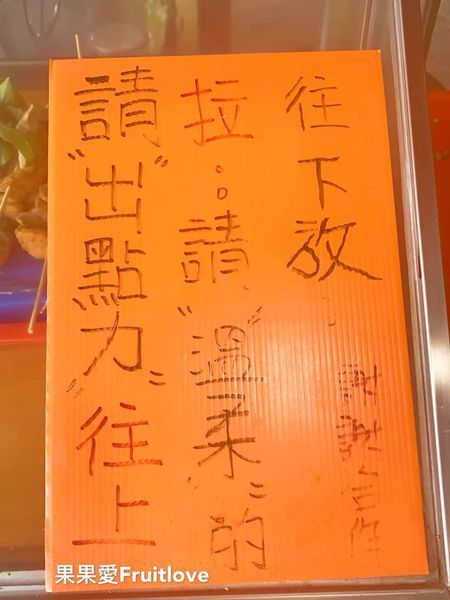 請"出點力"往上
拉。。請"溫柔"的
往下放..
謝謝合作
果果愛Fruitlove